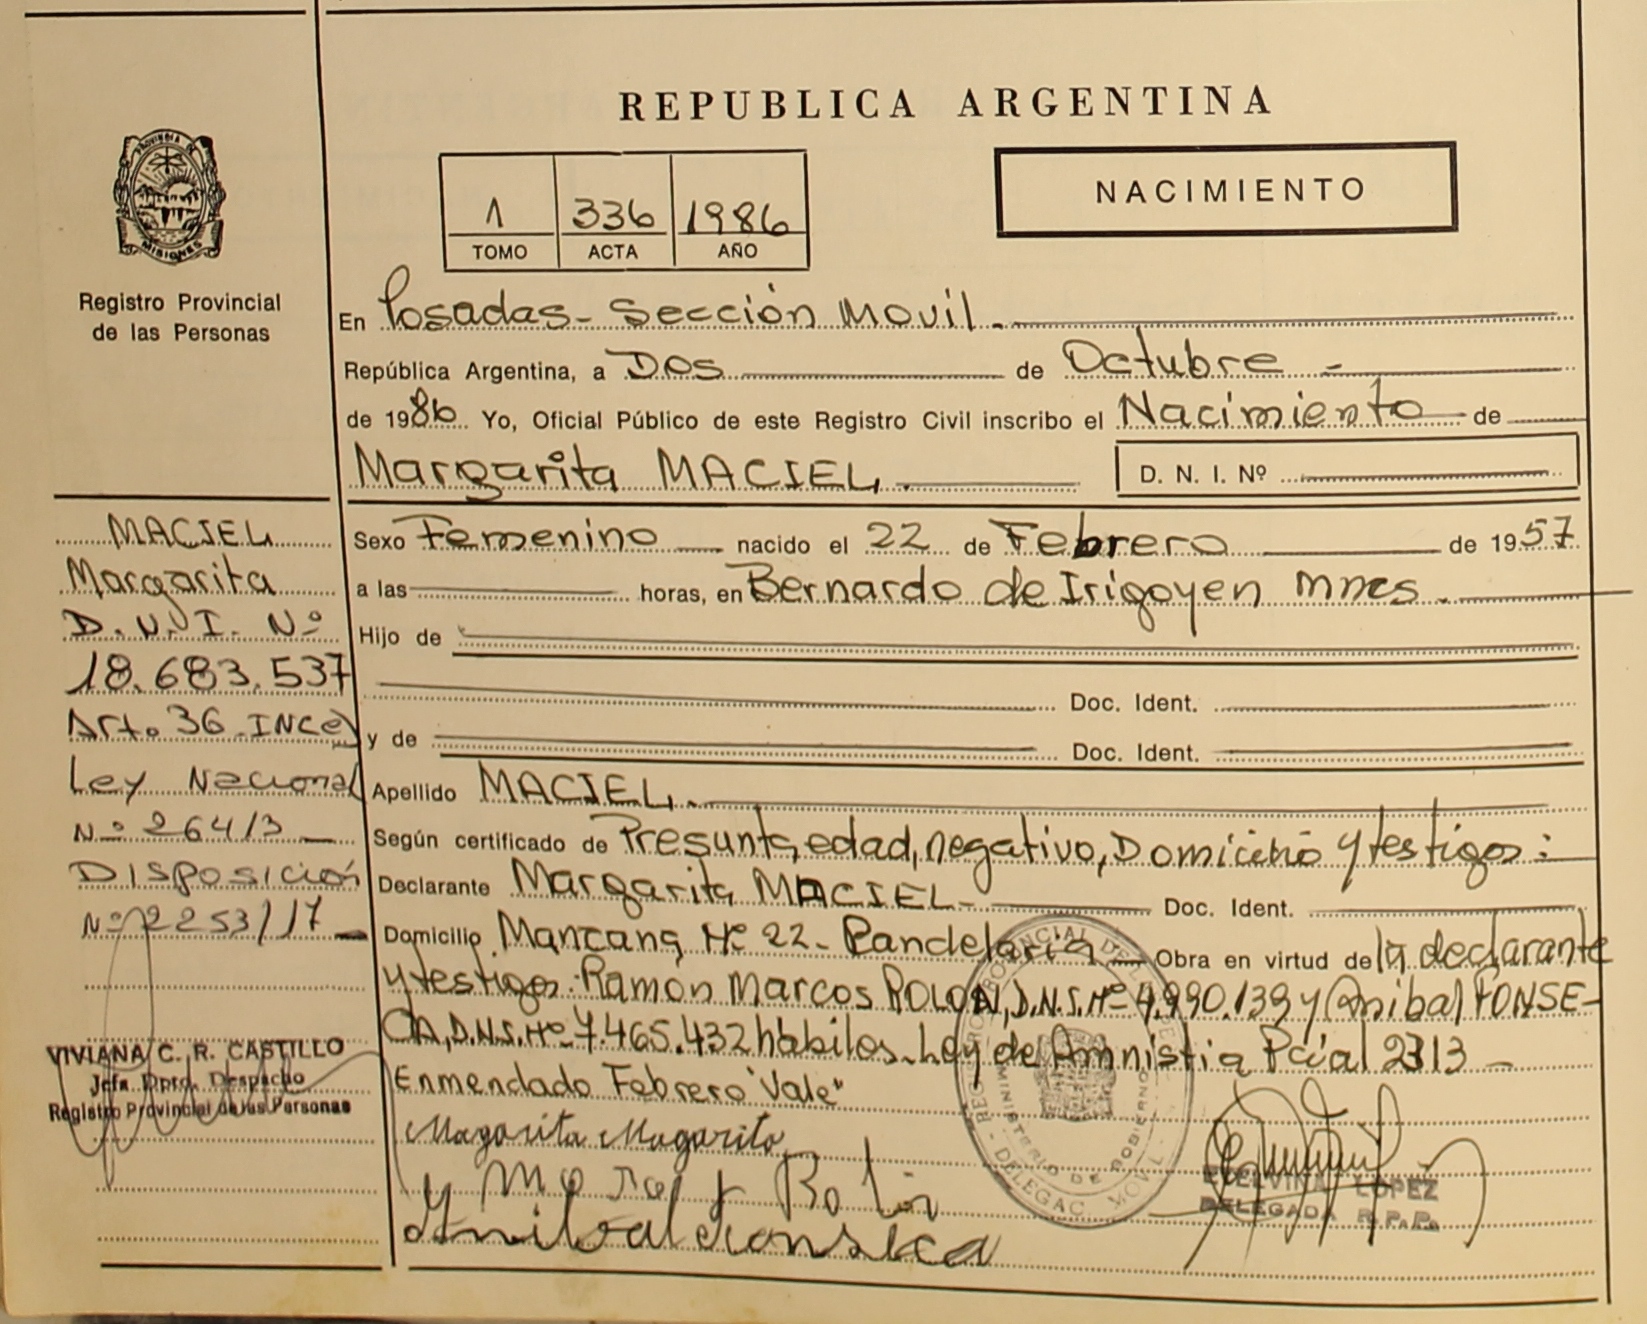 REPUBLICA ARGENTINA
PROVINCIA DE
MISIONES
Registro Provincial
de las Personas
1 336 1986
TOMO ACTA AÑO
NACIMIENTO
En Posadas - Sección Movil.
República Argentina, a Dos de Octubre -
de 1986. Yo, Oficial Público de este Registro Civil inscribo el Nacimiento de
Margarita MACIEL. D. N. I. Nº
Sexo Femenino nacido el 22 de Febrero de 1957
a las horas, en Bernardo de Irigoyen Mnes.
Hijo de
Doc. Ident.
y de Doc. Ident.
Apellido MACIEL.
Según certificado de Presunta edad, negativo, Domicilio y testigos:
Declarante Margarita MACIEL- Doc. Ident.
Domicilio Manzana Nº 22- Candelaria Obra en virtud de la declarante
y testigos: Ramón Marcos ROLON, D.N.I. Nº 4.990.139 y Anibal FONSE-
CA, D.N.I. Nº 7.465.432 habiles. Ley de Amnistia Pcial 2313 -
Enmendado Febrero "Vale"
Magarita Magarito
Anibal Fonseca
MACIEL
Margarita
D.N.I. Nº
18.683.537
Art. 36 INC c)
Ley Nacional
Nº 26413
DISPOSICIÓN
Nº 2253/17
VIVIANA C. R. CASTILLO
Jefa Dpto. Despacho
Registro Provincial de las Personas
MINISTERIO DE GOBIERNO
DELEGAC. MOVIL
ETELVINA LOPEZ
DELEGADA R.P.P.